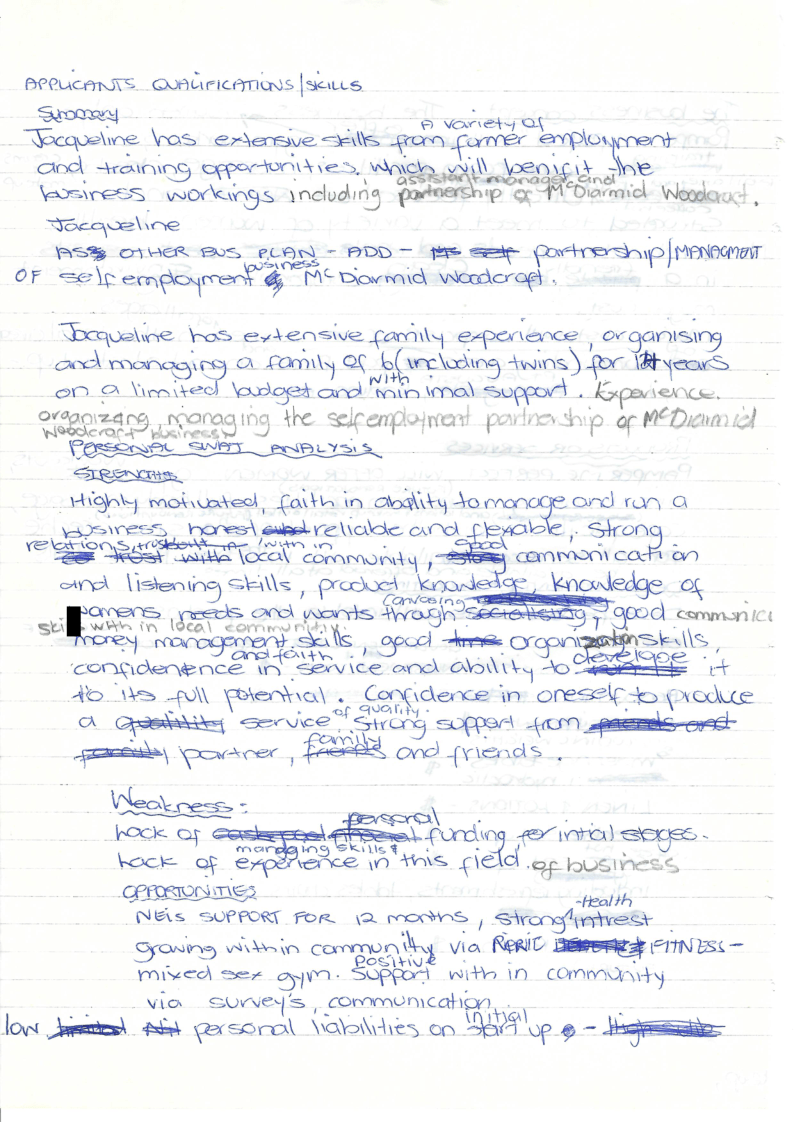 APPLICANTS QUALIFICATIONS/SKILLS
Summary
A variety of
Jacqueline has extensive skills from former employment
and training opportunities, which will benifit the
assistant manager and
business workings including partnership of McDiarmid Woodcraft.
Jacqueline
ASS OTHER BUS PLAN - ADD - partnership/MANAGMENT
OF self employment business McDiarmid Woodcraft.
Jacqueline has extensive family experience, organising
and managing a family of 6 (including twins) for years
on a limited budget and with minimal support. Experience.
organizang, managing the self employment partnership of McDiarmid
Woodcraft business
PERSONAL SWAT ANALYSIS
STRENGTHS
Highly motivated, faith in ability to manage and run a
business, honest and reliable and flexable, Strong
relations, with in good
trust with local community, communication
and listening skills, product knowledge, knowledge of
canvasing
womens needs and wants through socialising, good communici
with in local communitiy.
money management skills good time organization skills,
and faith develope
confidenence in service and ability to it
to its full potential. Confidence in oneself to produce
of quality.
a quality service. Strong support from friends and
family
family partner, friends and friends.
Weakness:
personal
Lack of financial funding for intial stages.
managing skills &
Lack of experience in this field. of business
OPPORTUNITIES
-Health
NEIS SUPPORT FOR 12 months, strong intrest
growing within community via FITNESS -
positive
mixed sex gym. Support with in community
via survey's, communication
initial
low limited personal liabilities on start up -